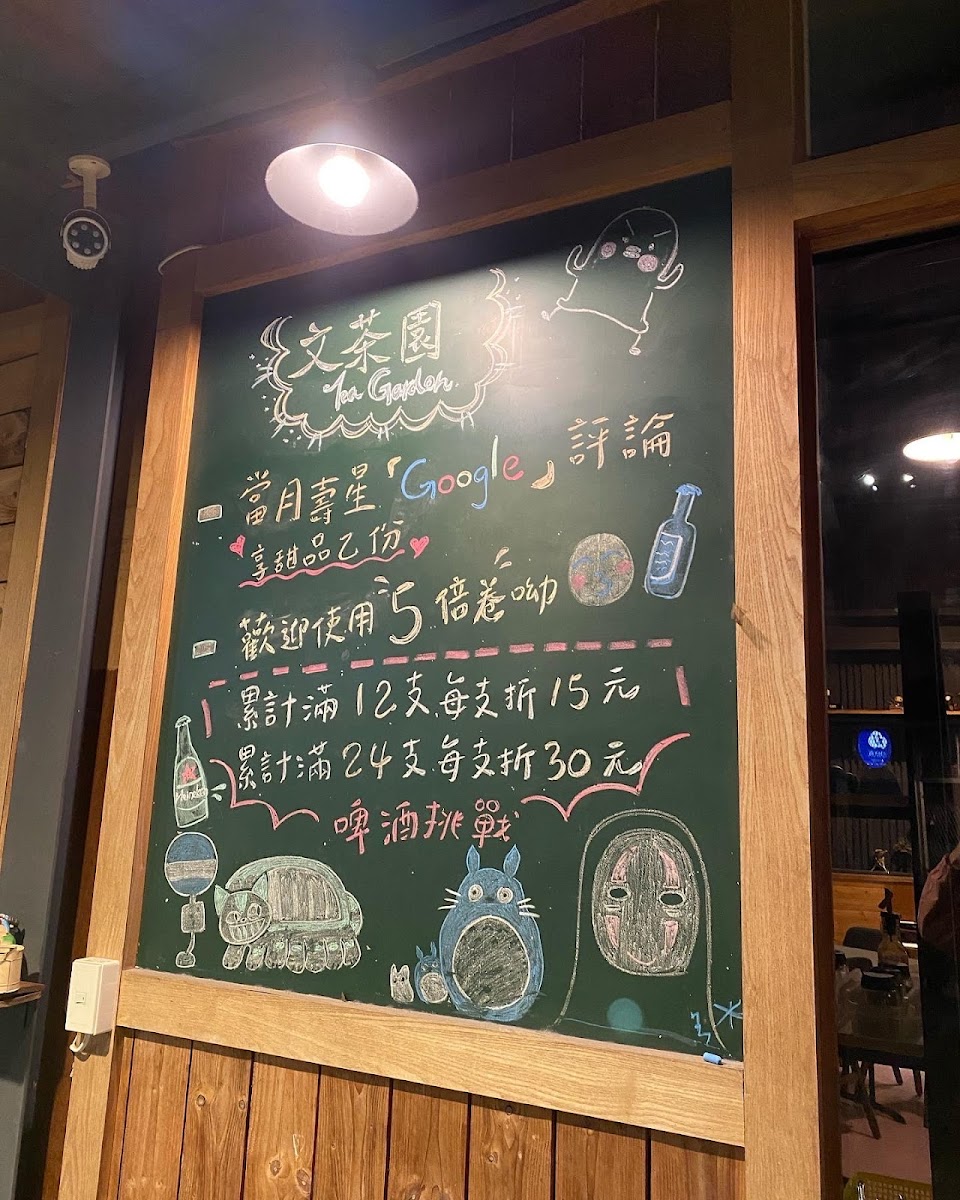 文茶園
Tea Garden
當月壽星「Google」評論
享甜品乙份
歡迎使用5倍卷呦
累計滿12支每支折15元
累計滿24支每支折30元
啤酒挑戰